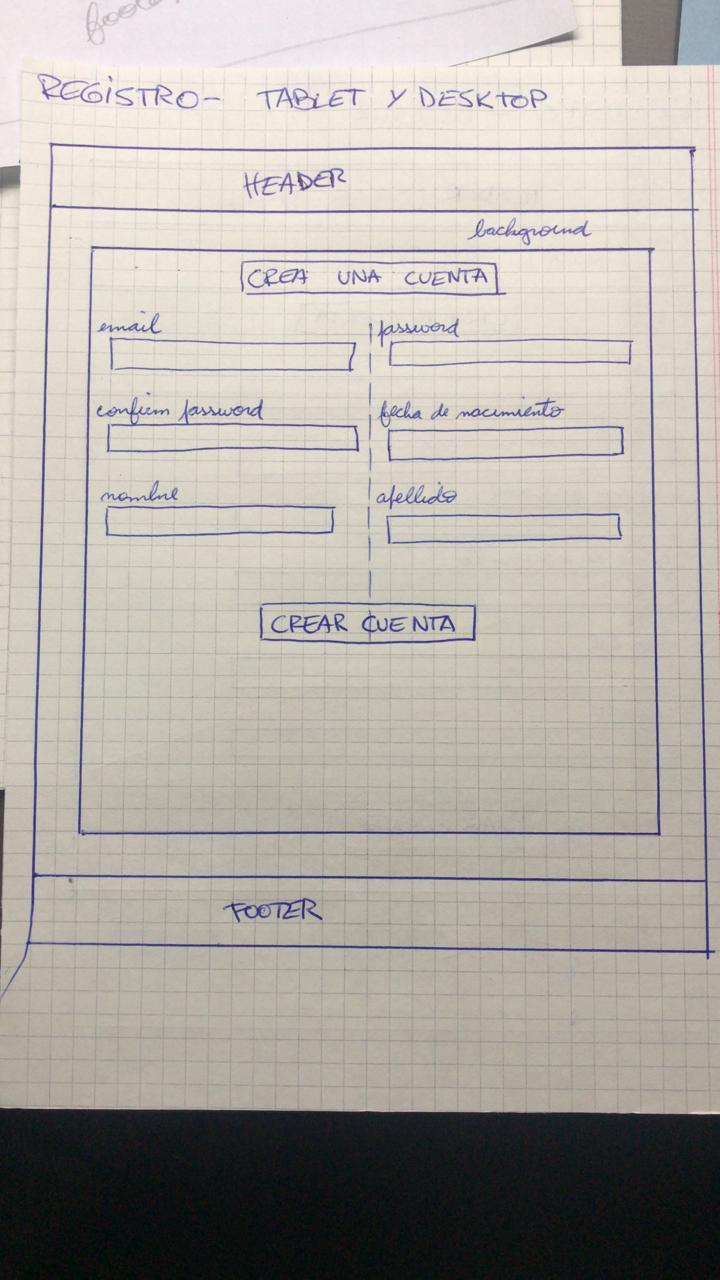 REGISTRO - TABLET Y DESKTOP
HEADER
background
CREA UNA CUENTA
email password
confirm password fecha de nacimiento
nombre apellido
CREAR CUENTA
FOOTER